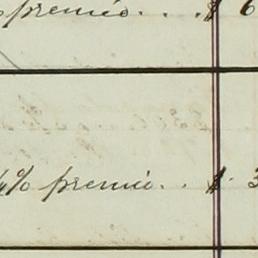 premio . . . $ 6
% premio . . $ 3